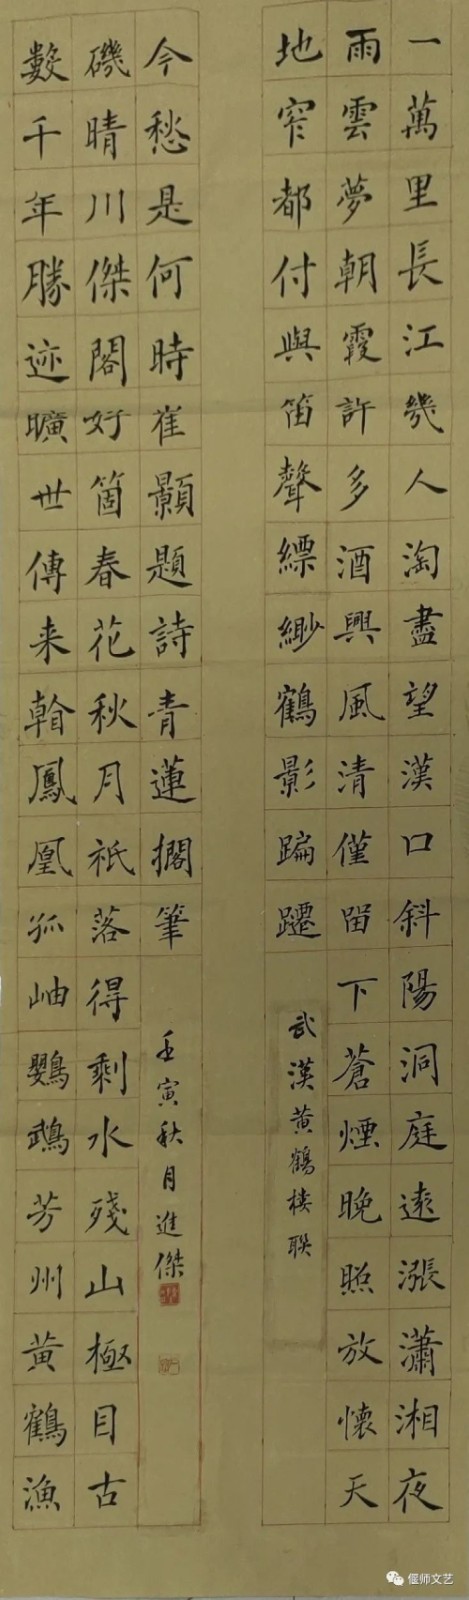 一萬里長江幾人淘盡望漢口斜陽洞庭遠漲瀟湘夜
雨雲夢朝霞許多酒興風清僅留下蒼煙晚照放懷天
地窄都付與笛聲縹緲鶴影蹁躚
武漢黄鶴樓聯
數千年勝迹曠世傳来翰鳳凰孤岫鸚鵡芳州黄鶴漁
磯晴川傑閣好箇春花秋月祇落得剩水殘山極目古
今愁是何時崔顥題詩青蓮擱筆
壬寅秋月進傑
偃师文艺